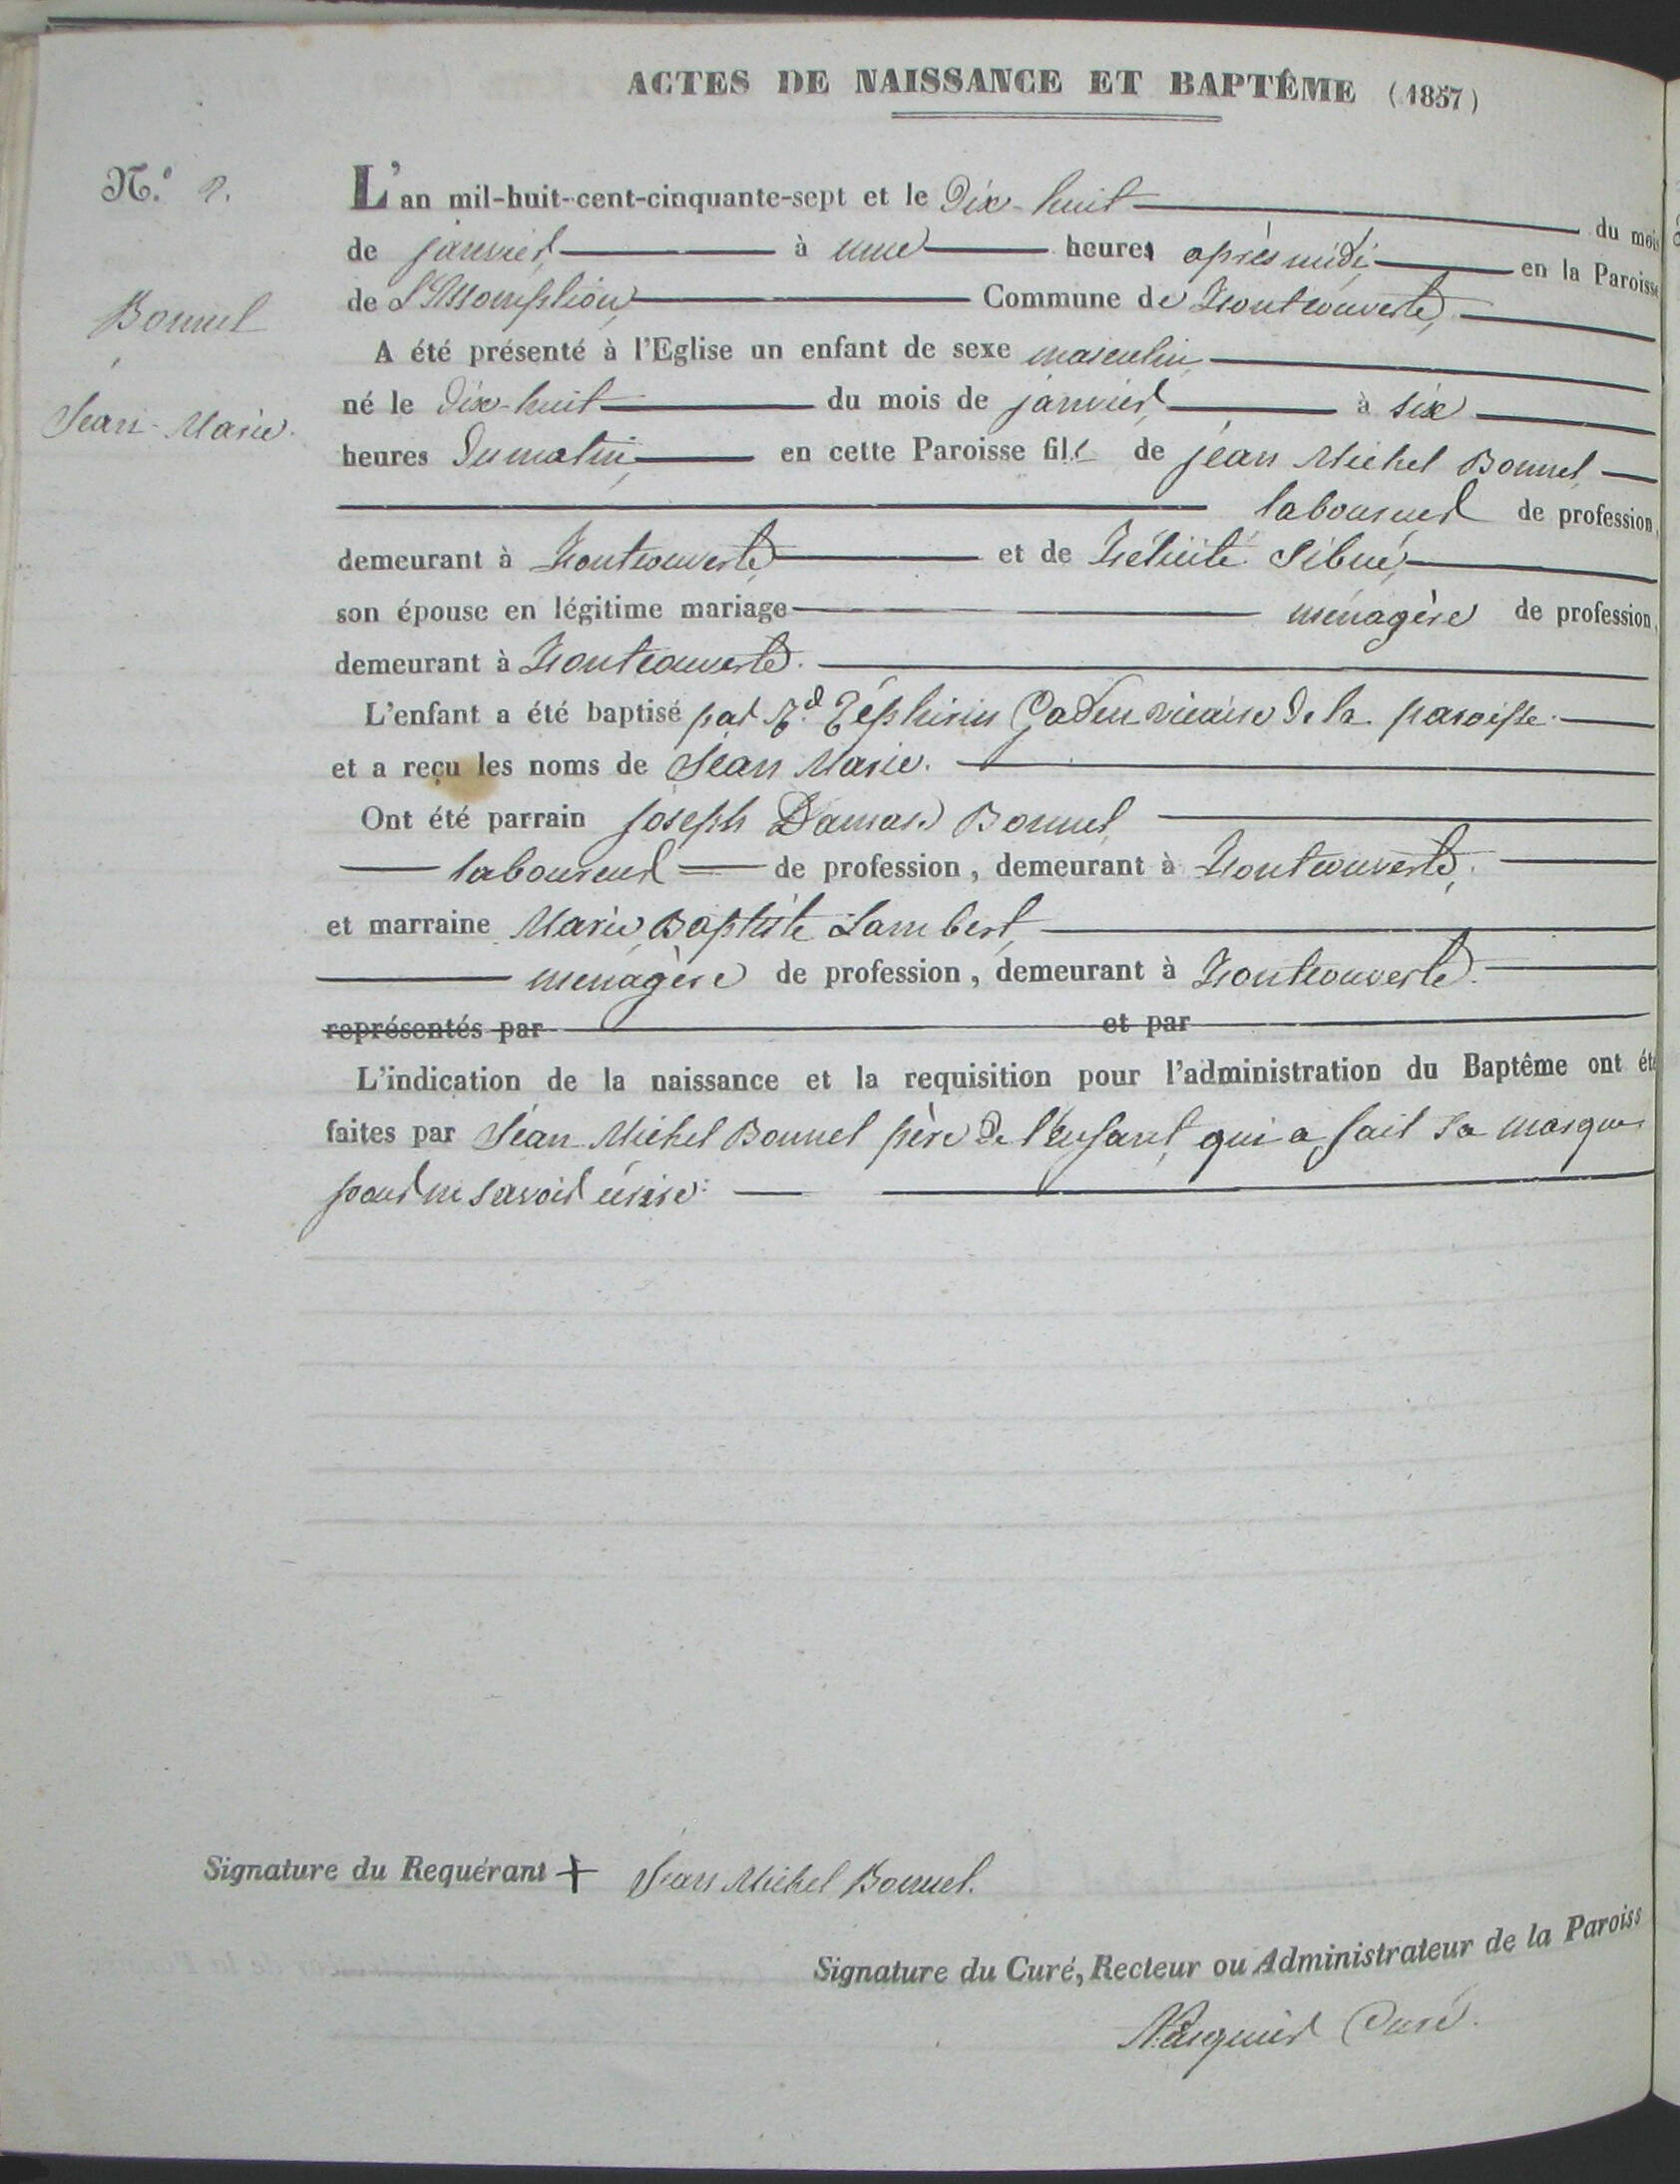 ACTES DE NAISSANCE ET BAPTÊME (1857)
N.o 2.
Bonnel
Jean-Marie.
L'an mil-huit-cent-cinquante-sept et le Dix-huit du mois
de janvier, à une heures après midi, en la Paroisse
de L'Assomption, Commune de Fontcouverte,
A été présenté à l'Eglise un enfant de sexe masculin,
né le dix-huit du mois de janvier, à six
heures du matin, en cette Paroisse fils de jean Michel Bonnel,
laboureur de profession,
demeurant à Fontcouverte, et de Félicité Sibué,
son épouse en légitime mariage ménagère de profession,
demeurant à Fontcouverte.
L'enfant a été baptisé par Rd. Zéphirin vicaire de la paroisse.
et a reçu les noms de Jean Marie.
Ont été parrain joseph Damas Bonnel,
laboureur de profession, demeurant à Fontcouverte,
et marraine Marie Baptiste Lambert,
ménagère de profession, demeurant à Fontcouverte.
représentés par et par
L'indication de la naissance et la requisition pour l'administration du Baptême ont été
faites par Jean Michel Bonnel père de l'enfant, qui a fait sa marque
pour ne savoir écrire.
Signature du Requérant + Jean Michel Bonnel.
Signature du Curé, Recteur ou Administrateur de la Paroiss
Curé.